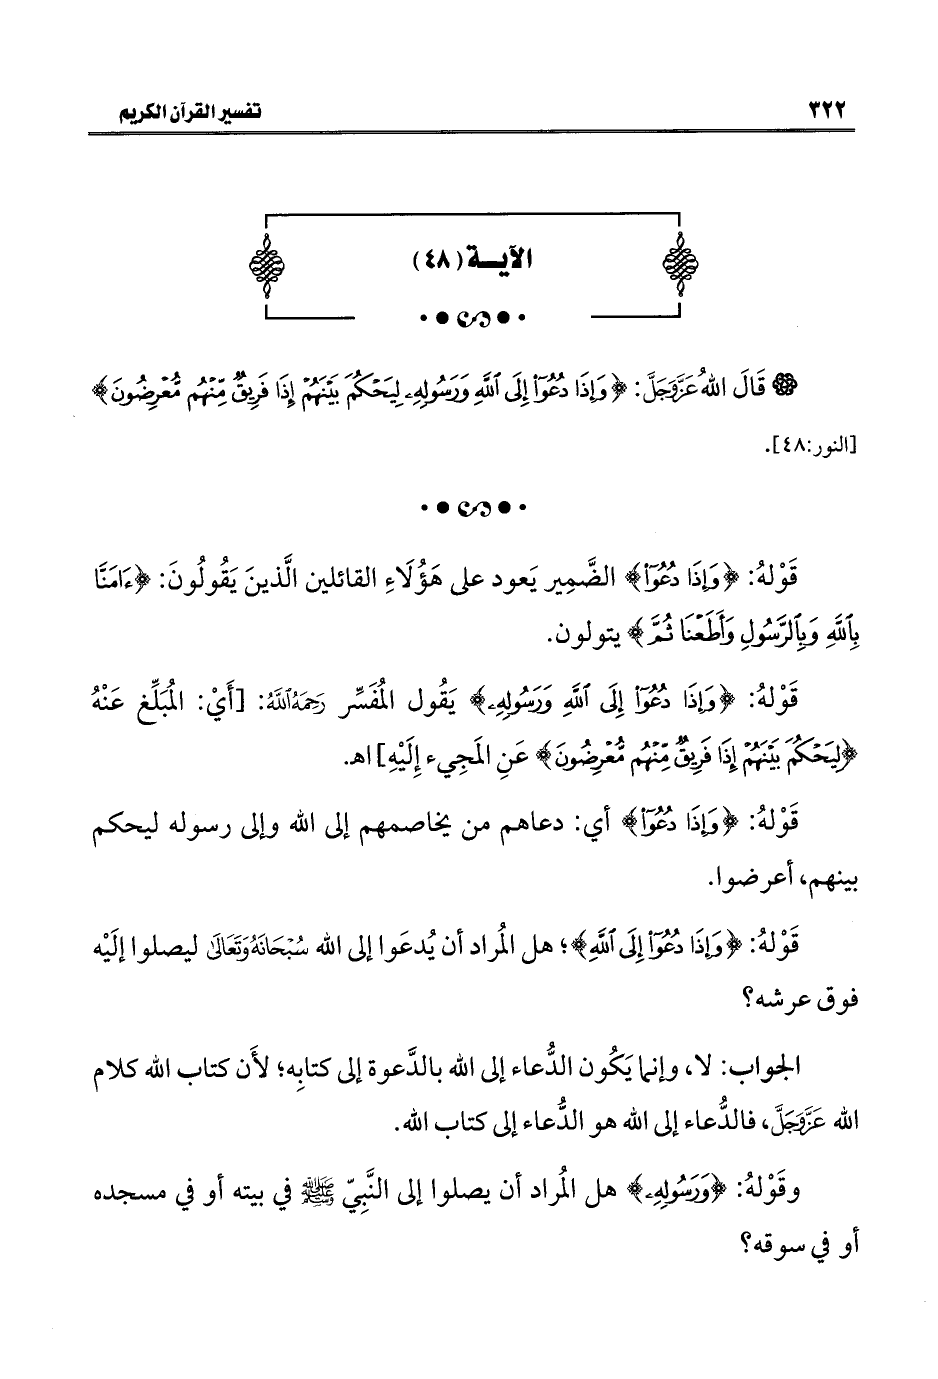 ٣٢٢
تفسير القرآن الكريم
الآيــة (٤٨)
قَالَ اللهُ عَزَّوَجَلَّ: ﴿وَإِذَا دُعُوٓا۟ إِلَى ٱللَّهِ وَرَسُولِهِۦ لِيَحْكُمَ بَيْنَهُمْ إِذَا فَرِيقٌ مِّنْهُم مُّعْرِضُونَ﴾
[النور:٤٨].
قَوْلهُ: ﴿وَإِذَا دُعُوٓا۟﴾ الضَّمِير يَعود على هَؤُلَاءِ القائلين الَّذينَ يَقُولُونَ: ﴿ءَامَنَّا
بِٱللَّهِ وَبِٱلرَّسُولِ وَأَطَعْنَا ثُمَّ﴾ يتولون.
قَوْلهُ: ﴿وَإِذَا دُعُوٓا۟ إِلَى ٱللَّهِ وَرَسُولِهِۦ﴾ يَقُول المُفَسِّر رَحِمَهُ ٱللَّهُ: [أَيْ: المُبَلِّغ عَنْهُ
﴿لِيَحْكُمَ بَيْنَهُمْ إِذَا فَرِيقٌ مِّنْهُم مُّعْرِضُونَ﴾ عَنِ المَجِيء إِلَيْهِ] اهـ.
قَوْلهُ: ﴿وَإِذَا دُعُوٓا۟﴾ أي: دعاهم من يخاصمهم إلى الله وإلى رسوله ليحكم
بينهم، أعرضوا.
قَوْلهُ: ﴿وَإِذَا دُعُوٓا۟ إِلَى ٱللَّهِ﴾؛ هل المُراد أن يُدعَوا إلى الله سُبْحَانَهُ وَتَعَالَى ليصلوا إلَيْه
فوق عرشه؟
الجواب: لا، وإنما يَكُون الدُّعاء إلى الله بالدَّعوة إلى كتابِه؛ لأَن كتاب الله كلام
الله عَزَّوَجَلَّ، فالدُّعاء إلى الله هو الدُّعاء إلى كتاب الله.
وقَوْلهُ: ﴿وَرَسُولِهِۦ﴾ هل المُراد أن يصلوا إلى النَّبِيّ ﷺ في بيته أو في مسجده
أو في سوقه؟